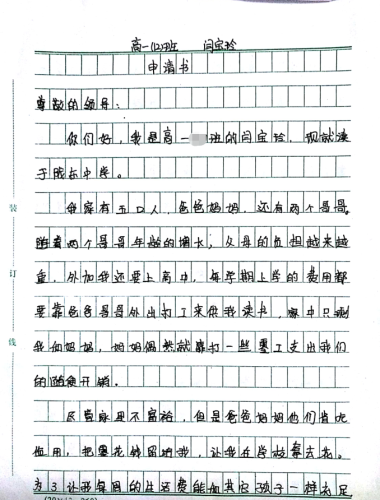 高一(12)班 闫宝玲
申请书
尊敬的领导:
你们好,我是高一 班的闫宝玲,现就读
于 中学。
我家有五口人,爸爸妈妈,还有两个哥哥。
随着两个哥哥年龄的增长,父母的负担越来越
重,外加我还要上高中,每学期上学的费用都
要靠爸爸哥哥外出打工来供我读书,家中只剩
我和妈妈,妈妈偶然就靠打一些零工支出我们
的 开销。
尽管家里不富裕,但是爸爸妈妈他们省吃
俭用,把零花钱留给我,让我在学校
为了让我每周的生活费能和其它孩子一样充足
装
订
线